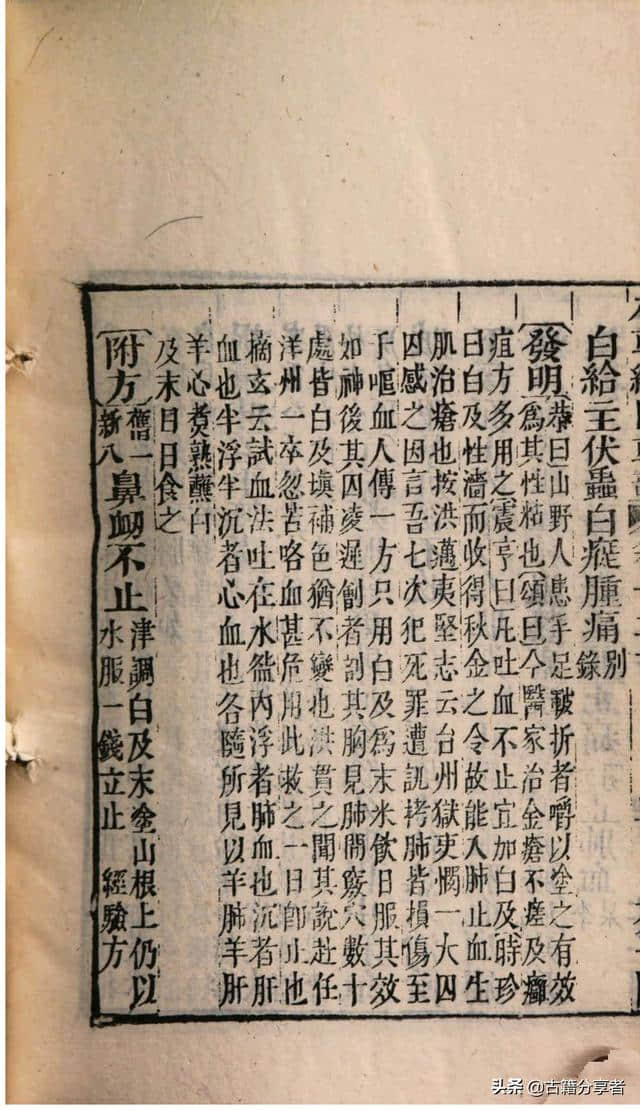 白給主伏蟲白癬腫痛別錄
〔發明〕恭曰山野人患手足皸拆者嚼以塗之有效
爲其性粘也〔頌曰〕今醫家治金瘡不瘥及癰
疽方多用之〔震亨曰〕凡吐血不止宜加白及時珍
曰白及性濇而收得秋金之令故能入肺止血生
肌治瘡也按洪邁夷堅志云台州獄吏憫一大囚
囚感之因言吾七次犯死罪遭訊拷肺皆損傷至
于嘔血人傳一方只用白及爲末米飲日服其效
如神後其囚凌遲劊者剖其胸見肺間竅穴數十
處皆白及塡補色猶不變也洪貫之聞其說赴任
洋州一卒忽苦咯血甚危用此救之一日卽止也
摘玄云試血法吐在水盌內浮者肺血也沉者肝
血也半浮半沉者心血也各隨所見以羊肺羊肝
羊心煑熟蘸白
及末日日食之
〔附方〕舊一新八鼻衂不止津調白及末塗山根上仍以
水服一錢立止 經驗方
头条 @古籍分享者